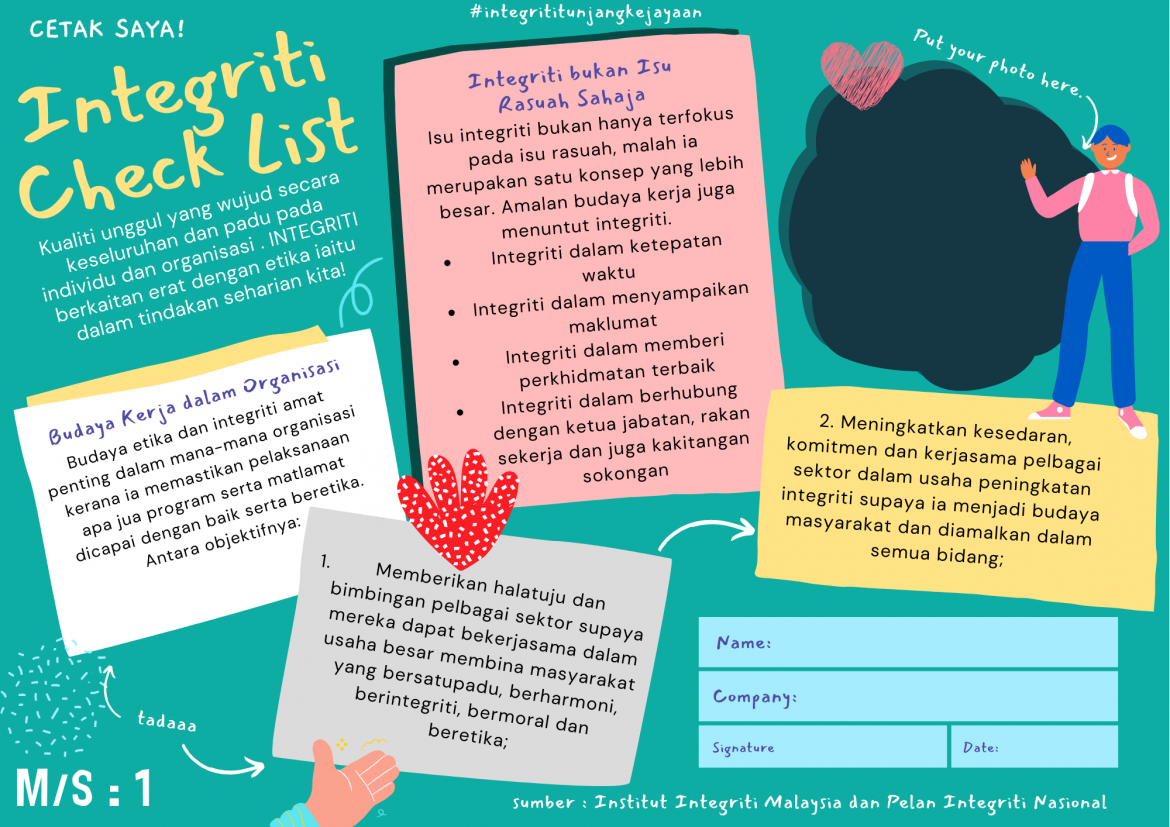 CETAK SAYA!
Integriti
Check List
Kualiti unggul yang wujud secara
keseluruhan dan padu pada
individu dan organisasi . INTEGRITI
berkaitan erat dengan etika iaitu
dalam tindakan seharian kita!
#integrititunjangkejayaan
Integriti bukan Isu
Rasuah Sahaja
Isu integriti bukan hanya terfokus
pada isu rasuah, malah ia
merupakan satu konsep yang lebih
besar. Amalan budaya kerja juga
menuntut integriti.
• Integriti dalam ketepatan
waktu
• Integriti dalam menyampaikan
maklumat
• Integriti dalam memberi
perkhidmatan terbaik
• Integriti dalam berhubung
dengan ketua jabatan, rakan
sekerja dan juga kakitangan
sokongan
Put your photo here.
Budaya Kerja dalam Organisasi
Budaya etika dan integriti amat
penting dalam mana-mana organisasi
kerana ia memastikan pelaksanaan
apa jua program serta matlamat
dicapai dengan baik serta beretika.
Antara objektifnya:
1. Memberikan halatuju dan
bimbingan pelbagai sektor supaya
mereka dapat bekerjasama dalam
usaha besar membina masyarakat
yang bersatupadu, berharmoni,
berintegriti, bermoral dan
beretika;
2. Meningkatkan kesedaran,
komitmen dan kerjasama pelbagai
sektor dalam usaha peningkatan
integriti supaya ia menjadi budaya
masyarakat dan diamalkan dalam
semua bidang;
Name:
Company:
Signature
Date:
tadaaa
M/S : 1
sumber : Institut Integriti Malaysia dan Pelan Integriti Nasional